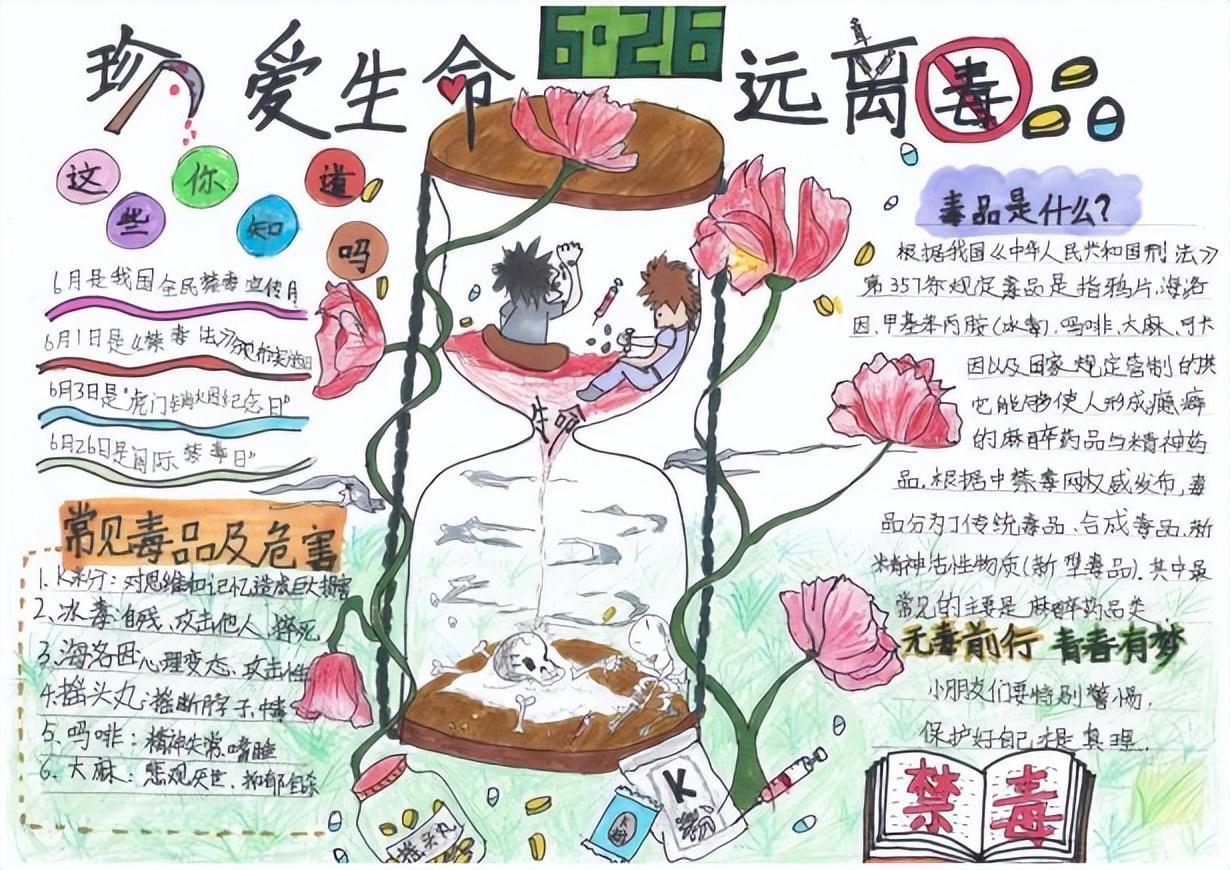 6·26
珍爱生命 远离毒
这些你知道吗
6月是我国全民禁毒宣传月
6月1日是《禁毒法》
6月3日是"虎门销烟纪念日"
6月26日是国际禁毒日"
常见毒品及危害
1. K粉: 对思维和记忆造成巨大损害
2. 冰毒:自残、攻击他人、猝死
3. 海洛因:心理变态、攻击性
4. 摇头丸:摇断脖子、
5. 吗啡: 精神失常、嗜睡
6. 大麻: 悲观厌世、抑郁自杀
生命
摇头丸
大麻
K
粉
毒品是什么?
根据我国《中华人民共和国刑法》
第357条规定毒品是指鸦片、海洛
因、甲基苯丙胺(冰毒)、吗啡、大麻、可卡
因以及国家规定管制的其
它能够使人形成瘾癖
的麻醉药品与精神药
品。根据中禁毒网权威发布,毒
品分为了传统毒品、合成毒品、新
精神活性物质(新型毒品)。其中最
常见的主要是麻醉药品类
无毒前行 青春有梦
小朋友们要特别警惕,
保护好自己才是真理.
禁毒